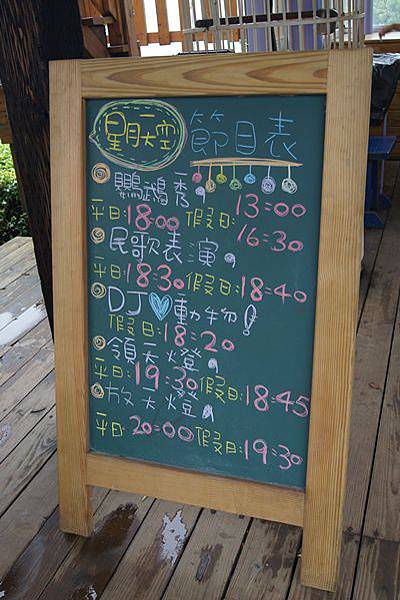 星月天空 節目表
鸚鵡秀。
平日:18:00 假日:13:00
16:30
民歌表演。
平日:18:30 假日:18:40
DJ♡動物!
假日:18:20
領天燈。
平日:19:30 假日:18:45
放天燈。
平日:20:00 假日:19:30